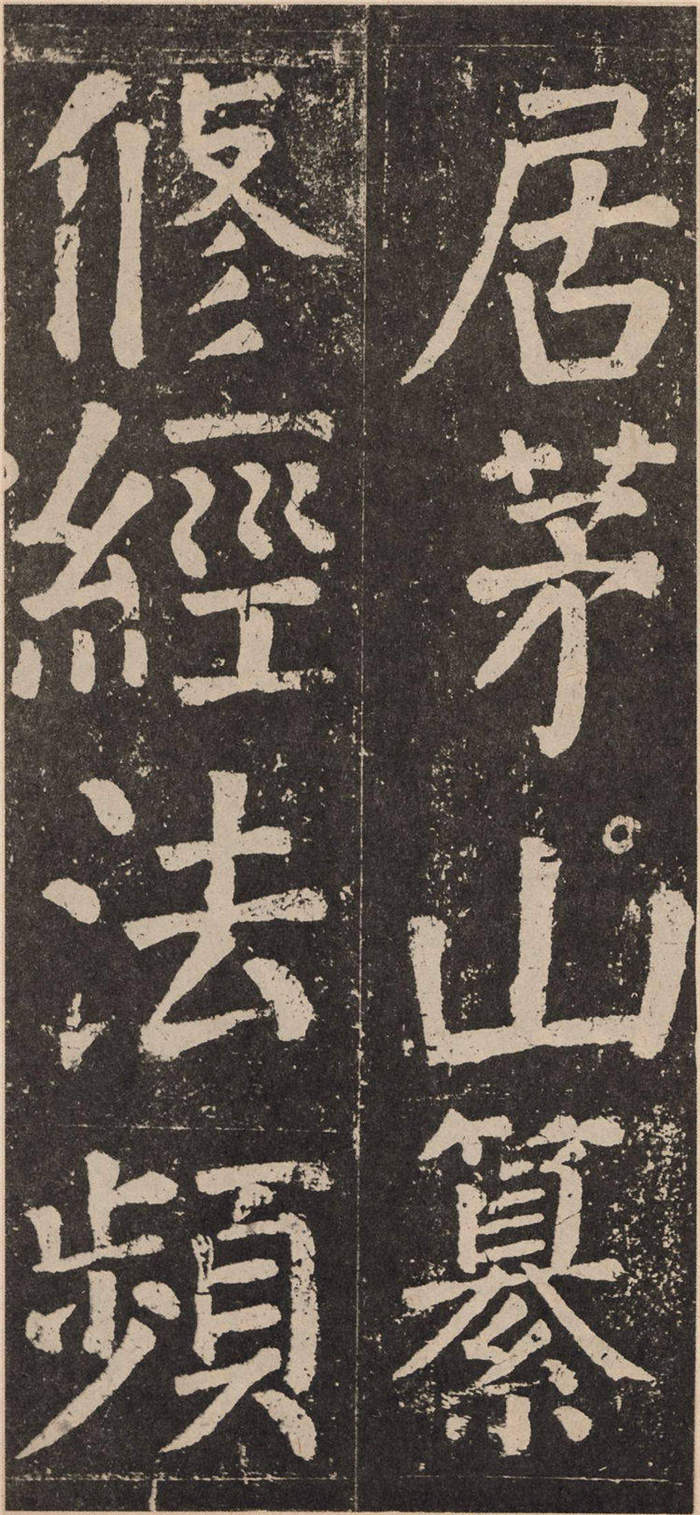 居茅山纂
脩經法頻